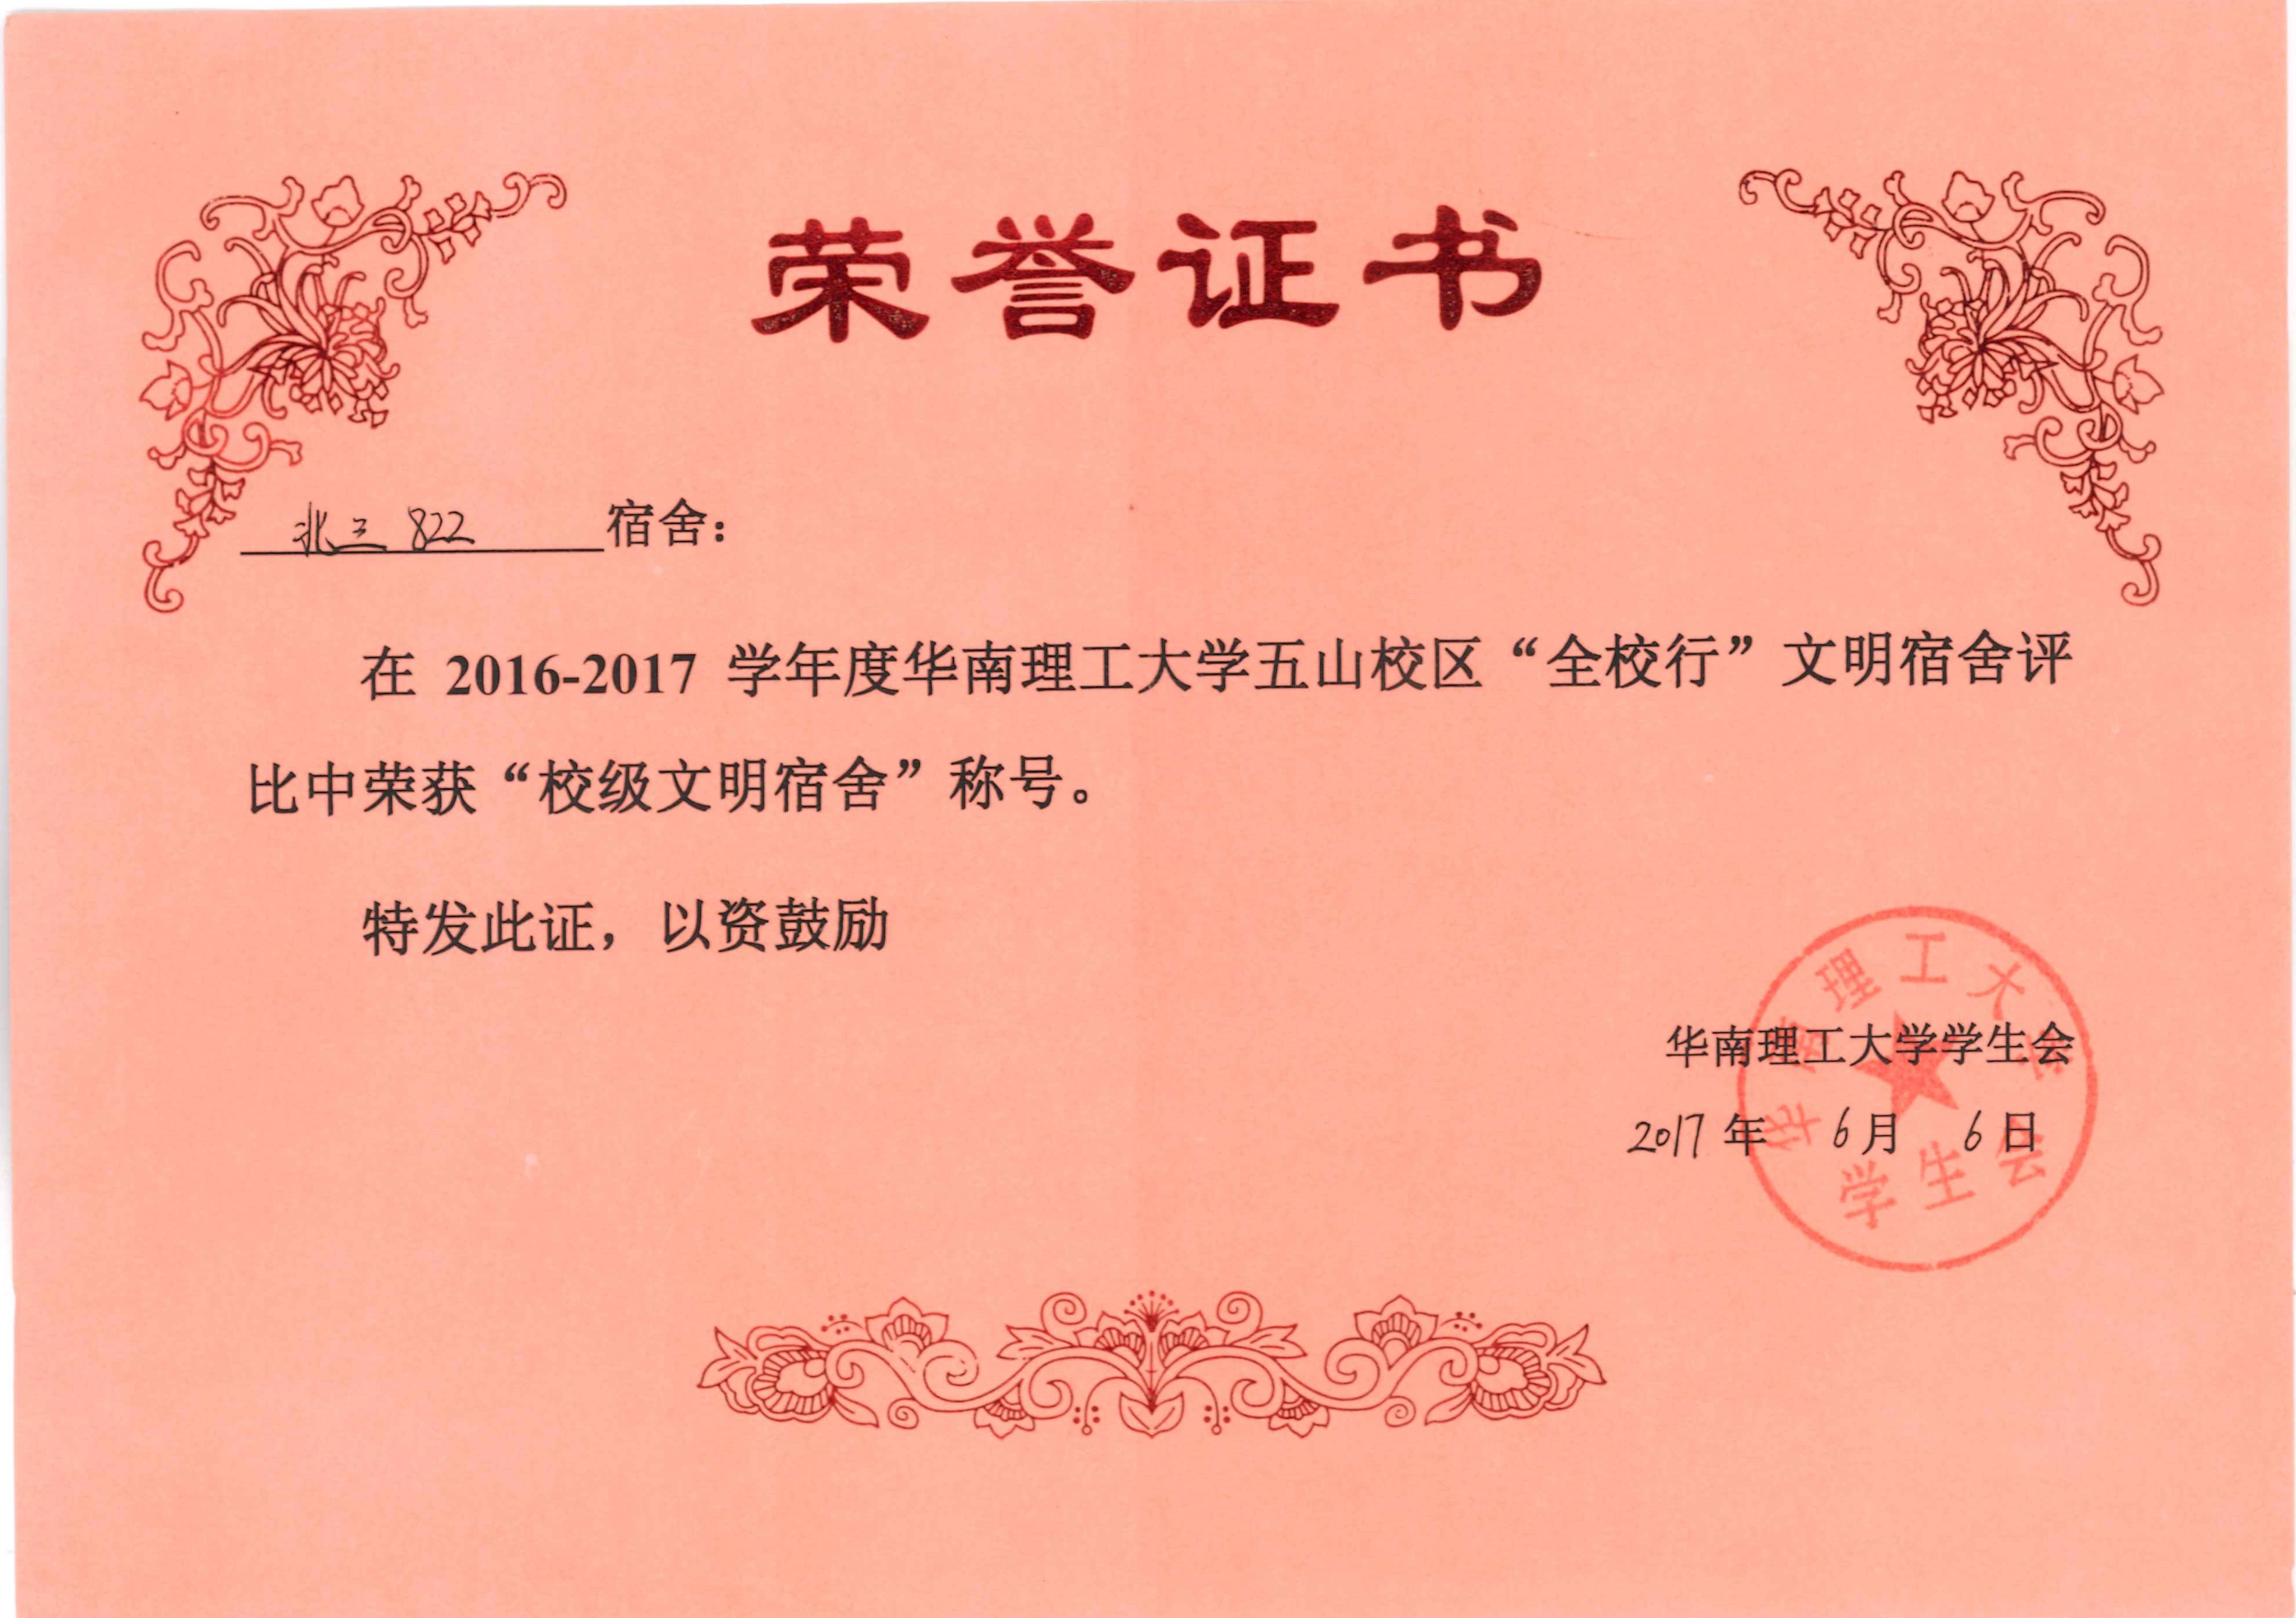 荣誉证书
北三 822 宿舍：
在 2016-2017 学年度华南理工大学五山校区“全校行”文明宿舍评
比中荣获“校级文明宿舍”称号。
特发此证，以资鼓励
华南理工大学学生会
2017 年 6 月 6 日
华南理工大学
学生会